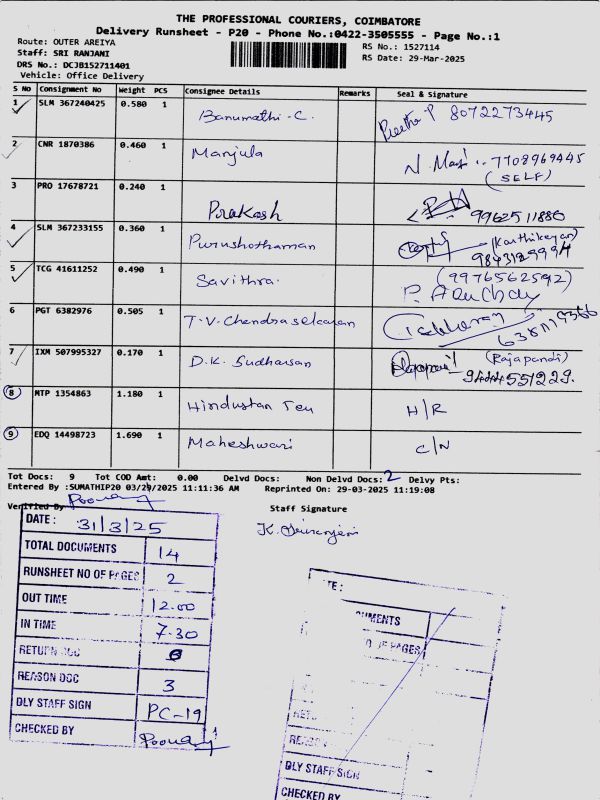 THE PROFESSIONAL COURIERS, COIMBATORE
Delivery Runsheet - P20 - Phone No.:0422-3505555 - Page No.:1
Route: OUTER AREIYA
RS No.: 1527114
Staff: SRI RANJANI
RS Date: 29-Mar-2025
DRS No.: DCJB152711401
Vehicle: Office Delivery
S No Consignment No Weight PCS Consignee Details Remarks Seal & Signature
1 SLM 367240425 0.580 1 Banumathi - C. Preetha P 8072273445
2 CNR 1870386 0.460 1 Manjula N. 7708969445
(SELF)
3 PRO 17678721 0.240 1 Prakash 9962511880
4 SLM 367233155 0.360 1 Purushothaman (Karthikeyan)
9843129994
5 TCG 41611252 0.490 1 Savithra. (9976562592)
P.
6 PGT 6382976 0.505 1 T.V. Chendraselcaran
7 IXM 507995327 0.170 1 D.K. Sudharsan (Rajapandi)
9444551229.
8 MTP 1354863 1.180 1 Hindustan H/R
9 EDQ 14498723 1.690 1 Maheshwari C/N
Tot Docs: 9 Tot COD Amt: 0.00 Delvd Docs: Non Delvd Docs: 2 Delvy Pts:
Entered By :SUMATHIP20 03/29/2025 11:11:36 AM Reprinted On: 29-03-2025 11:19:08
Verified By
Staff Signature
DATE: 31/3/25
TOTAL DOCUMENTS 14
RUNSHEET NO OF PAGES 2
OUT TIME 12.00
IN TIME 7.30
RETURN DOC
REASON DOC 3
DLY STAFF SIGN PC-19
CHECKED BY
DLY STAFF SIGN
CHECKED BY